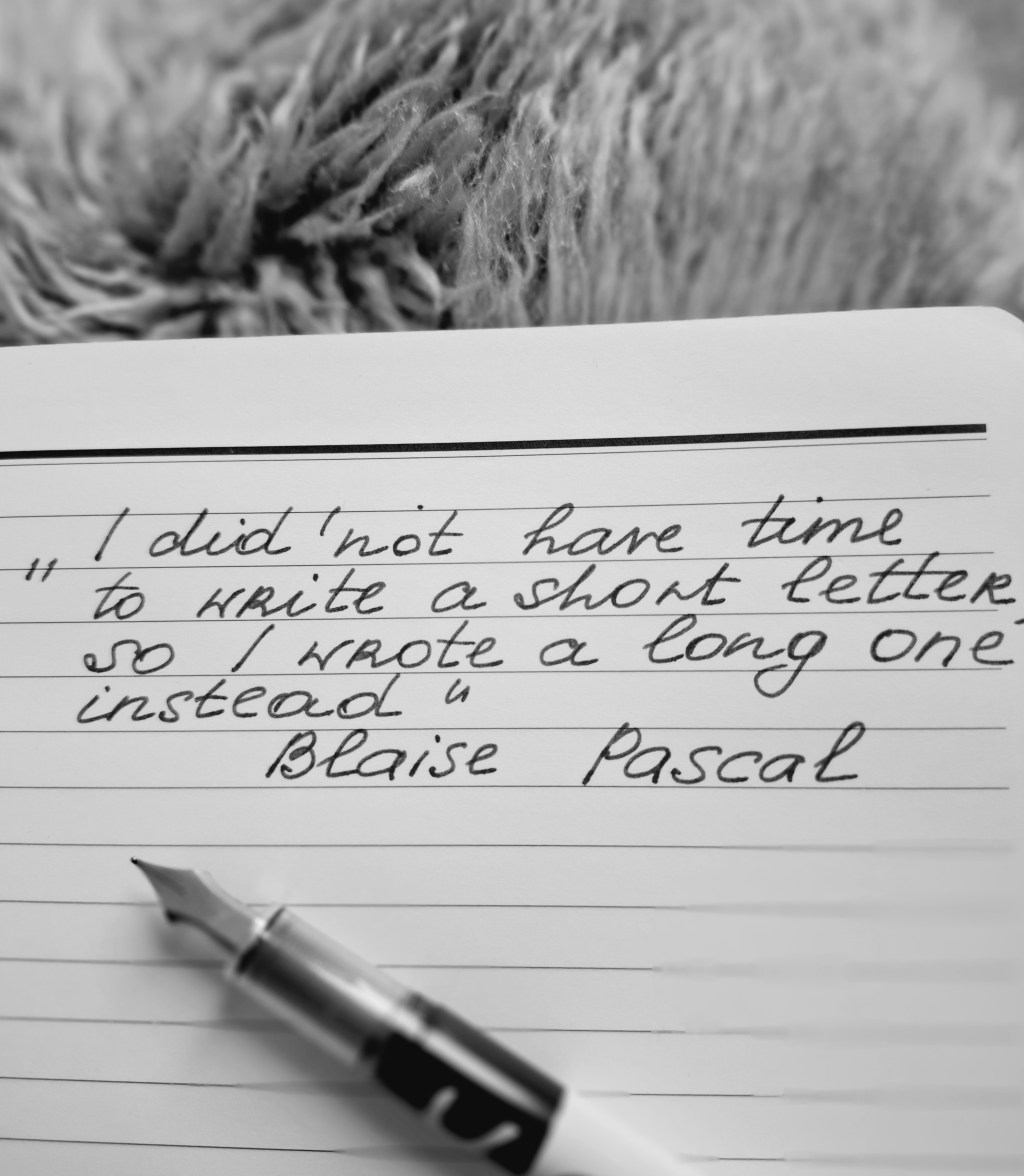 „ I did 'not have time
to write a short letter
so I wrote a long one
instead "
Blaise Pascal